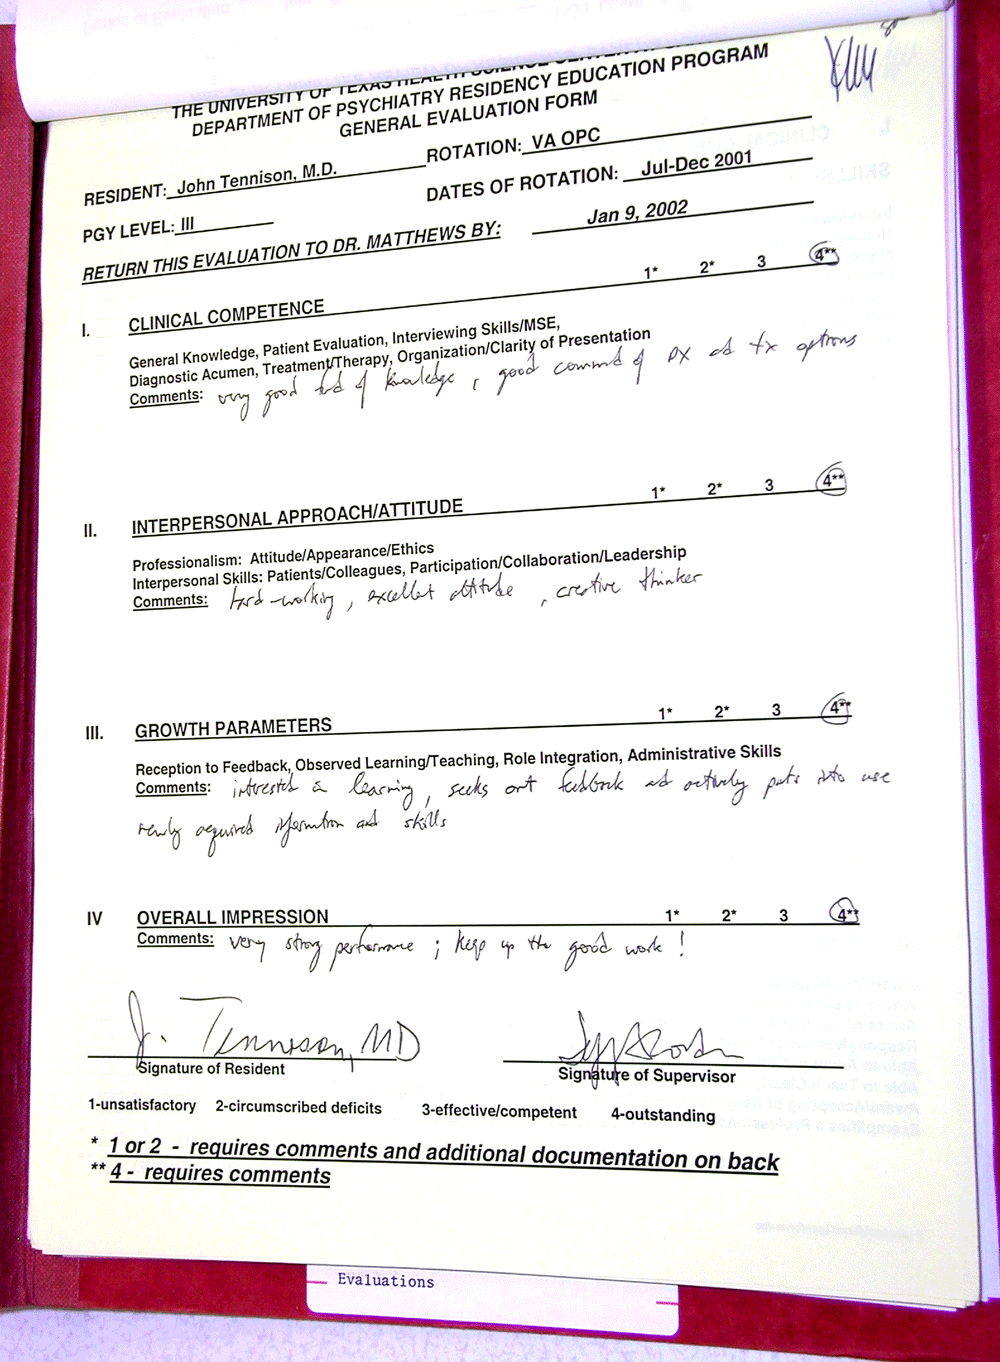 THE UNIVERSITY OF TEXAS HEALTH SCIENCE CENTER
DEPARTMENT OF PSYCHIATRY RESIDENCY EDUCATION PROGRAM
GENERAL EVALUATION FORM
RESIDENT: John Tennison, M.D. ROTATION: VA OPC
PGY LEVEL: III DATES OF ROTATION: Jul-Dec 2001
RETURN THIS EVALUATION TO DR. MATTHEWS BY: Jan 9, 2002
I. CLINICAL COMPETENCE 1* 2* 3 4**
General Knowledge, Patient Evaluation, Interviewing Skills/MSE,
Diagnostic Acumen, Treatment/Therapy, Organization/Clarity of Presentation
Comments: very good fund of knowledge, good command of DX and tx options
II. INTERPERSONAL APPROACH/ATTITUDE 1* 2* 3 4**
Professionalism: Attitude/Appearance/Ethics
Interpersonal Skills: Patients/Colleagues, Participation/Collaboration/Leadership
Comments: hard-working, excellent attitude, creative thinker
III. GROWTH PARAMETERS 1* 2* 3 4**
Reception to Feedback, Observed Learning/Teaching, Role Integration, Administrative Skills
Comments: interested in learning, seeks out feedback and actively puts into use
newly acquired information and skills
IV OVERALL IMPRESSION 1* 2* 3 4**
Comments: very strong performance; keep up the good work!
J. Tennison, MD
Signature of Resident Signature of Supervisor
1-unsatisfactory 2-circumscribed deficits 3-effective/competent 4-outstanding
* 1 or 2 - requires comments and additional documentation on back
** 4 - requires comments
Evaluations